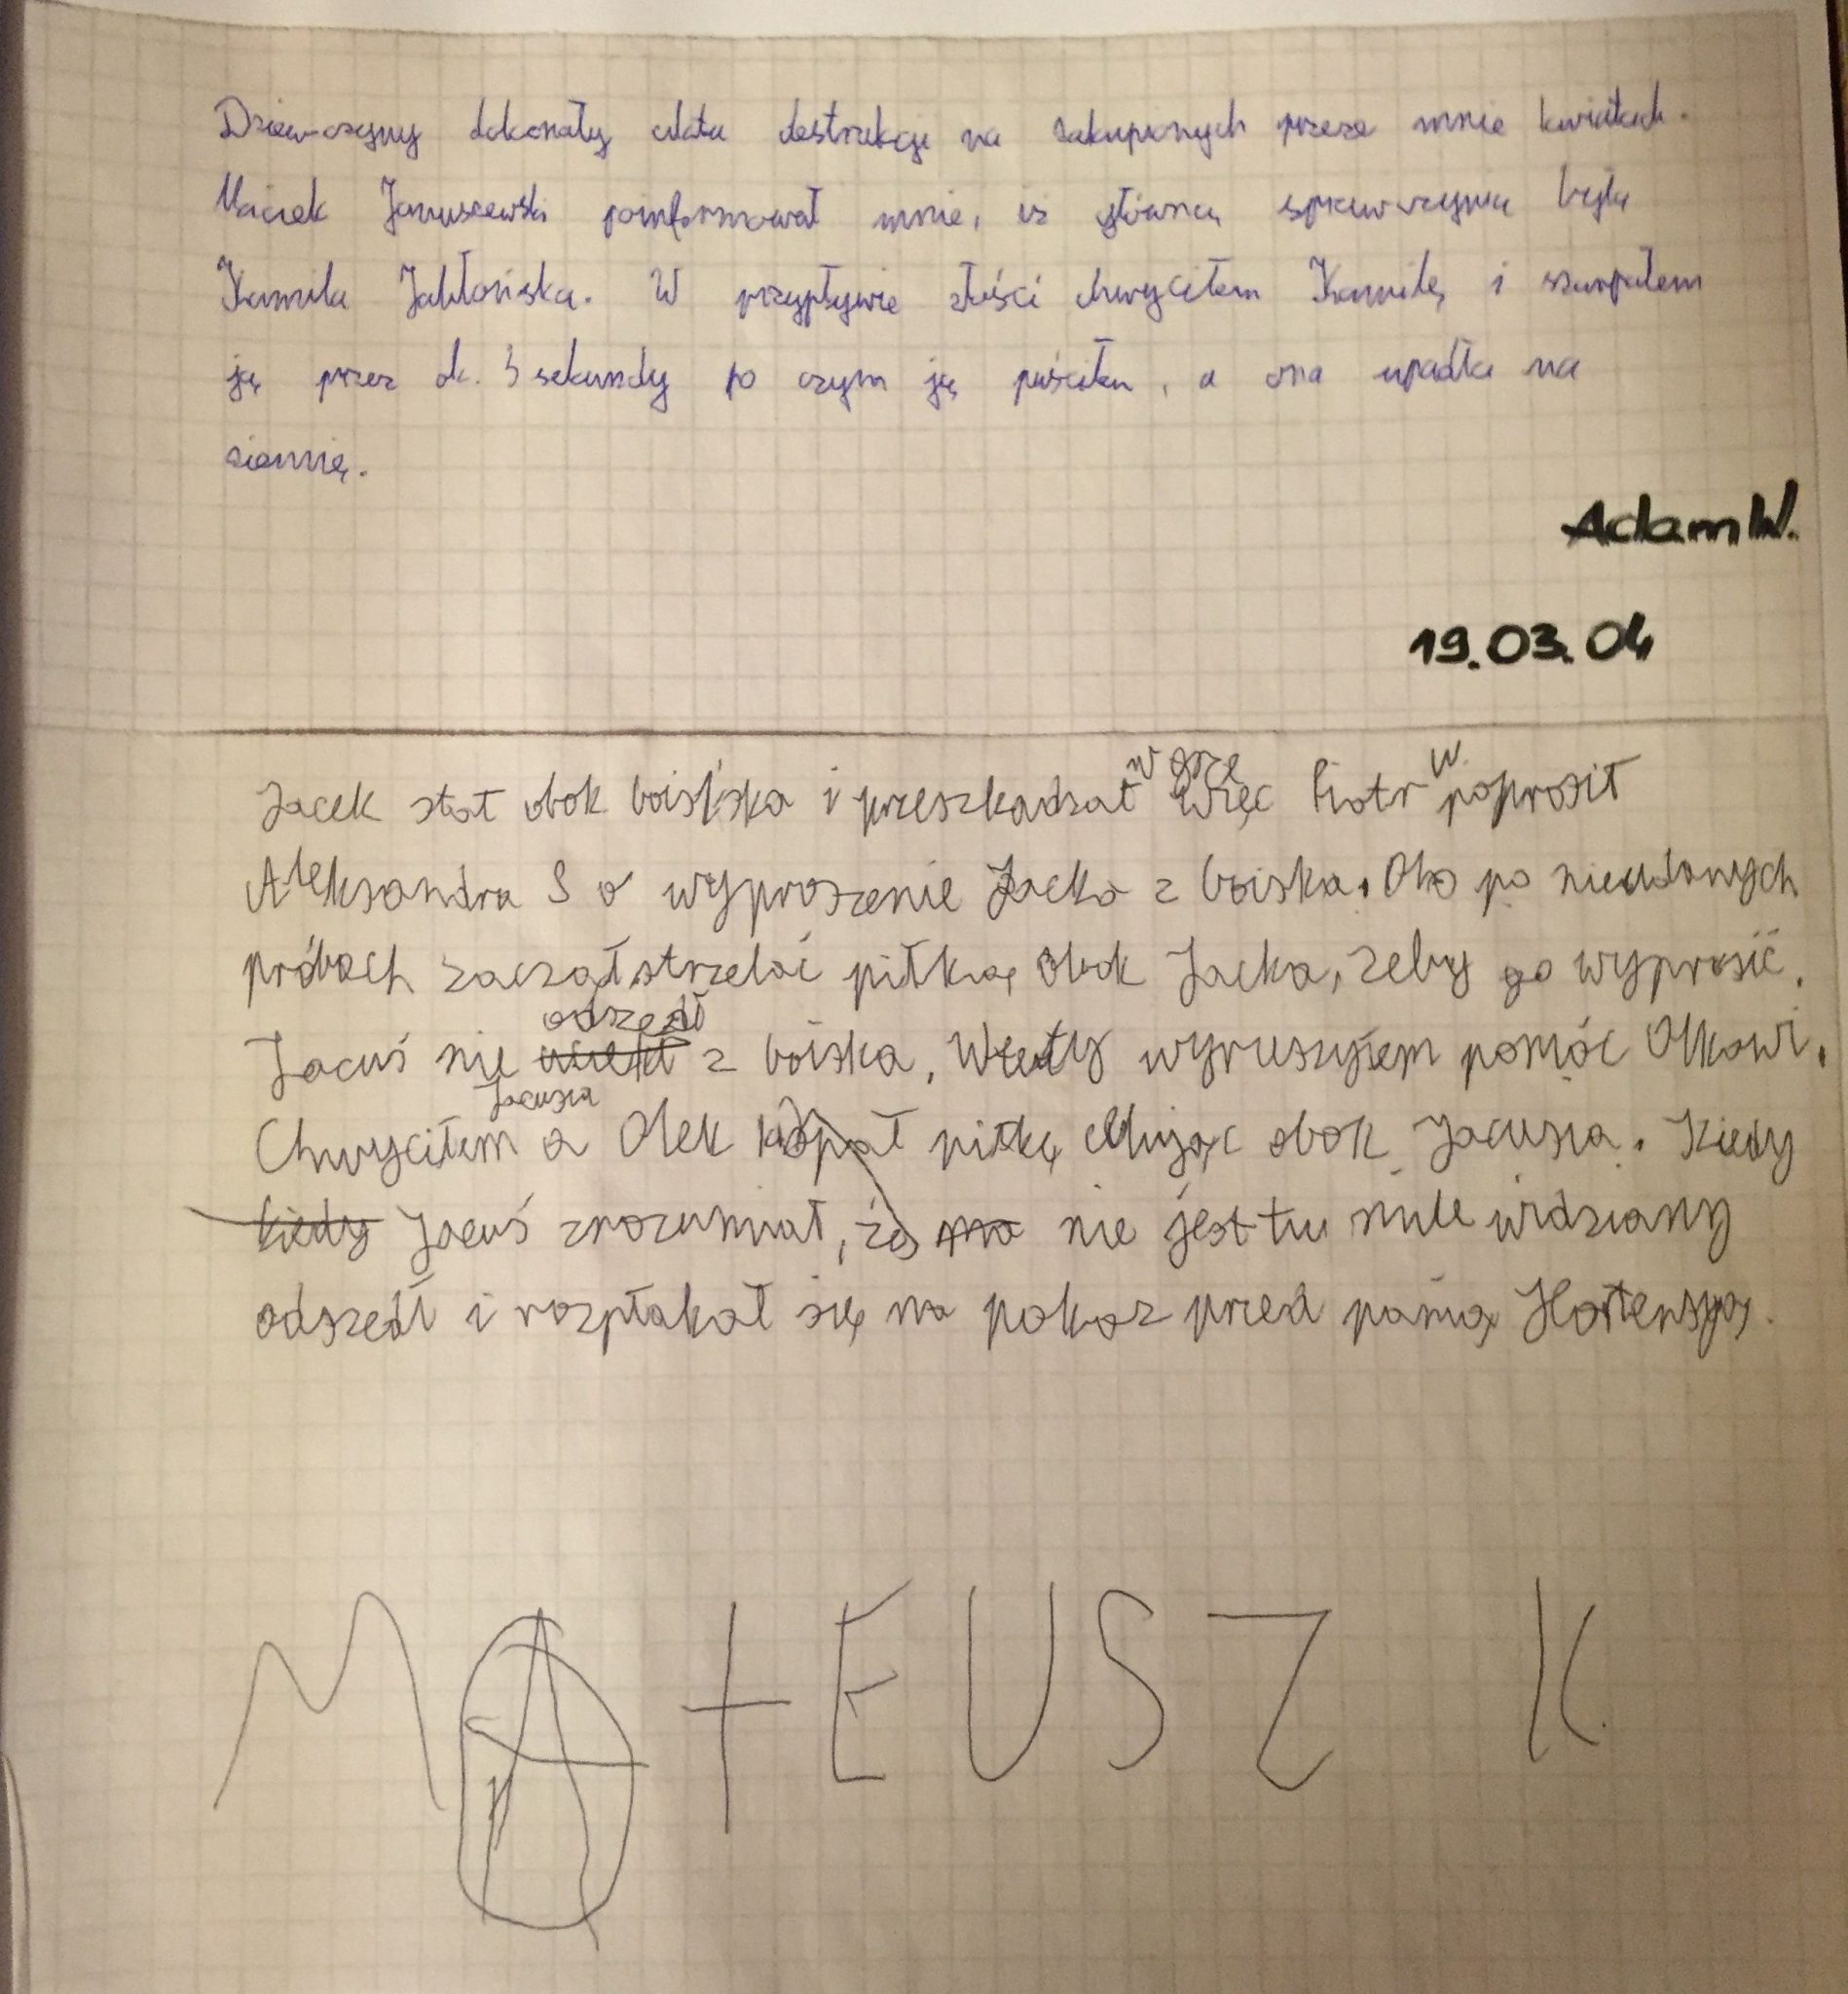 Dziewczyny dokonały aktu destrukcji na zakupionych przeze mnie kwiatach.
Maciek Januszewski poinformował mnie, iż główną sprawczynią była
Kamila Jabłońska. W przypływie złości chwyciłem Kamilę i szarpałem
ją przez ok. 3 sekundy po czym ją puściłem, a ona upadła na
ziemię.
Adam W.
19.03.04
w grę W.
Jacek stał obok boiska i przeszkadzał więc Piotr poprosił
Aleksandra S o wyproszenie Jacka z boiska. Olo po nieudanych
próbach zaczął strzelać piłką obok Jacka, żeby go wyprosić.
odszedł
Jacuś nie z boiska, Wtedy wyruszyłem pomóc Olkowi.
Jacusia
Chwyciłem a Olek kopał piłkę celując obok Jacusia. Kiedy
kiedy Jacuś zrozumiał, że nie jest tu mile widziany
odszedł i rozpłakał się na pokaz przed panią Hortensją.
MAtEUSZ K.